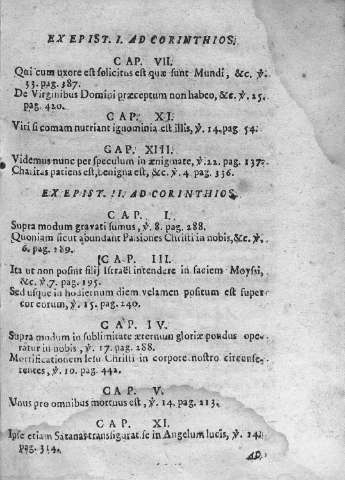 EX EPIST. I. AD CORINTHIOS.
CAP. VII.
Qui cum uxore est solicitus est quæ sunt Mundi, &c. ℣.
33. pag. 387.
De Virginibus Domini præceptum non habeo, &c. ℣. 25.
pag. 420.
CAP. XI.
Viri si comam nutriant ignominia est illis, ℣. 14. pag 54.
CAP. XIII.
Videmus nunc per speculum in ænigmate, ℣. 22. pag. 137.
Charitas patiens est, benigna est, &c ℣. 4. pag. 336.
EX EPIST. II. AD CORINTHOS.
CAP. I.
Supra modum gravati sumus, ℣. 8. pag. 288.
Quoniam sicut abundant Passiones Christi in nobis, &c. ℣.
6. pag. 289.
CAP. III.
Ita ut non possint filij Israël intendere in faciem Moysi,
&c. ℣. 7. pag. 195.
Sed usque in hodiernum diem velamen positum est super
cor eorum, ℣. 15. pag. 240.
CAP. IV.
Supra modum in sublimitate æternum gloriæ pondus ope-
ratur in nobis, ℣. 17. pag. 288.
Mortificationem Iesu Christi in corpore nostro circunfe-
rentes, ℣. 10. pag. 442.
CAP. V.
Vnus pro omnibus mortuus est, ℣. 14. pag. 213.
CAP. XI.
Ipse etiam Satanas transfigurat se in Angelum lucis, ℣. 14.
pag. 314.
AD.